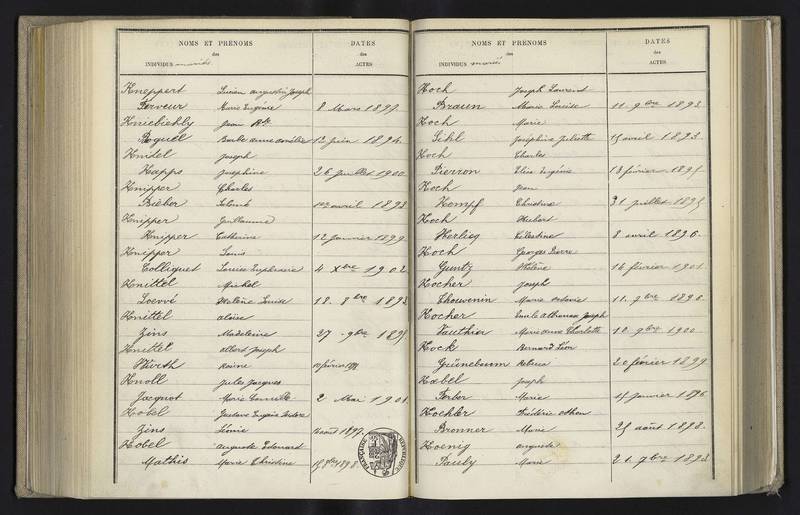 NOMS ET PRÉNOMS
des
INDIVIDUS mariés
DATES
des
ACTES
Kneppert Lucien Augustin Joseph
Perveur Marie Eugénie 8 Mars 1897.
Kniebiehly Jean Bte
Roquel Barbe anne amélie 12 juin 1894.
Knidel Joseph
Happs Joséphine 26 juillet 1900
Knipper Charles
Bieber 1er avril 1893
Knipper Guillaume
Knipper Catherine 12 janvier 1899
Knipper Louis
Colliquet Louise Euphrasie 4 Xbre 1902
Knittel Michel
Loevvé Hélène Louise 18 8bre 1893
Knittel Aloïse
Zins Madeleine 27 9bre 1895
Knittel Albert Joseph
Wurth Reine 10 février
Knoll Jules Jacques
Jacquot Marie Camille 2 Mai 1901
Kobel Gustave Eugène Isidore
Zins Léonie août 1897.
Kobel Auguste Edouard
Mathis Marie Christine 15 8bre 1898.
NOMS ET PRÉNOMS
des
INDIVIDUS mariés
DATES
des
ACTES
Koch Joseph Laurent
Braun Marie Louise 11 9bre 1893
Koch Marie
Sikl Joséphine Juliette 15 avril 1893.
Koch Charles
Pierron Elise Eugénie 18 février 1895
Koch Jean
Kempf Christine 31 juillet 1895
Koch Hubert
Herlicq Célestine 8 avril 1896.
Koch Georges Pierre
Guntz Hélène 16 février 1901.
Kocher Joseph
Thouvenin Marie 11 9bre 1890.
Kocher Emile Alphonse Joseph
Vauthier Marie Anne Charlotte 10 9bre 1900
Kock Bernard Léon
Grünebaum Rebecca 20 février 1899
Kœbel Joseph
Ferber Marie 15 janvier 1896
Kœchler Frédéric Othon
Bronner Marie 25 août 1898.
Koenig Auguste
Pauly Marie 21 7bre 1893